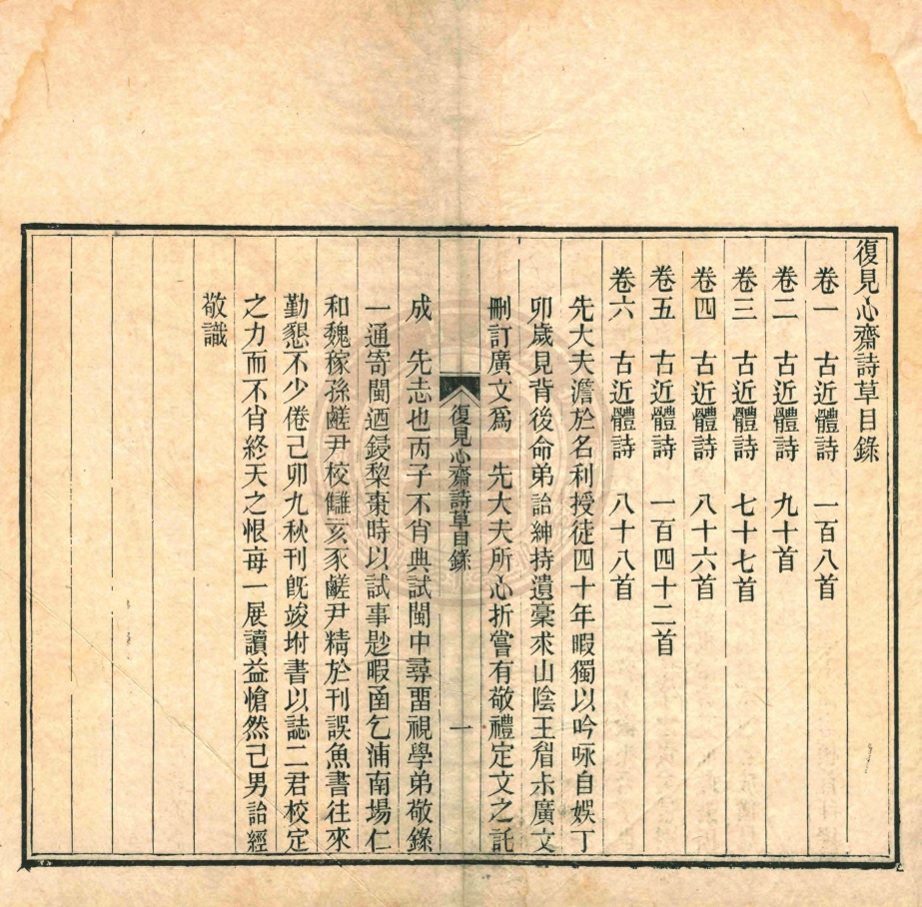 復見心齋詩草目錄
卷一　古近體詩　一百八首
卷二　古近體詩　九十首
卷三　古近體詩　七十七首
卷四　古近體詩　八十六首
卷五　古近體詩　一百四十二首
卷六　古近體詩　八十八首
先大夫澹於名利授徒四十年暇獨以吟咏自娛丁
卯歲見背後命弟詒紳持遺稾求山陰王眉尗廣文
刪訂廣文爲　先大夫所心折嘗有敬禮定文之託
復見心齋詩草目錄　一
成　先志也丙子不肖典試閩中尋畱視學弟敬錄
一通寄閩迺鋟棃棗時以試事尟暇函乞浦南場仁
和魏稼孫鹺尹校讎亥豕鹺尹精於刊誤魚書往來
勤懇不少倦己卯九秋刊旣竣坿書以誌二君校定
之力而不肖終天之恨每一展讀益愴然已男詒經
敬識